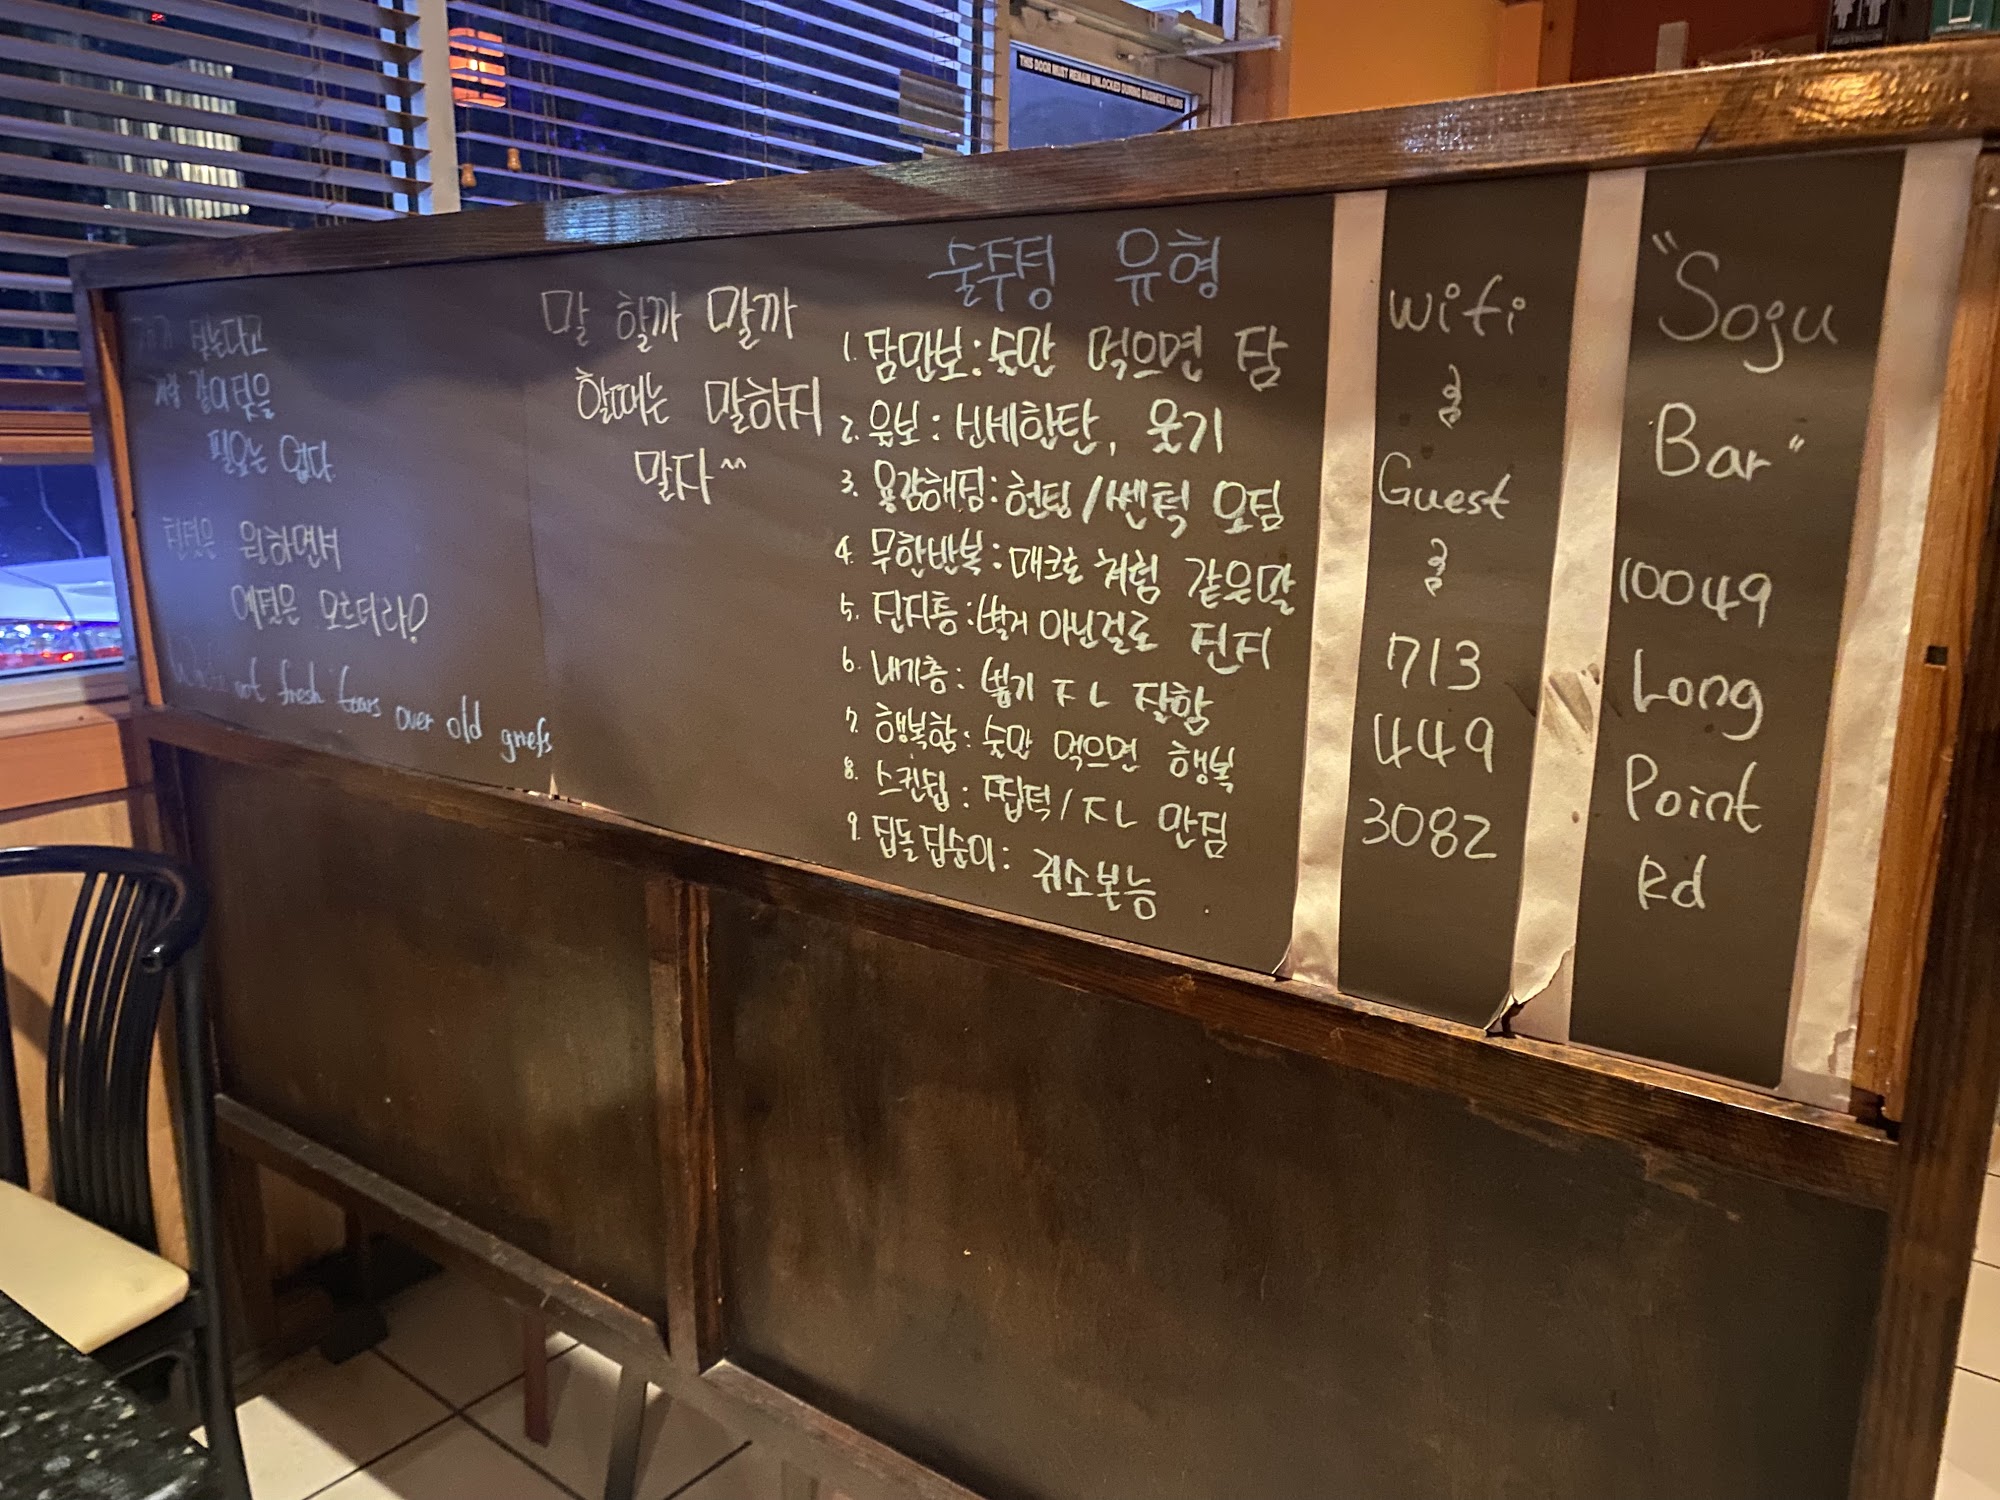 젖는다고
같이 젖을
필요는 없다
진정은 원하면서
애정은 모르더라?
Waste not fresh tears over old griefs
말 할까 말까
할때는 말하지
말자^^
술주정 유형
1. 잠만보 : 술만 먹으면 잠
2. 울보 : 신세한탄, 울기
3. 용감해짐 : 헌팅 / 쎈척 오짐
4. 무한반복 : 매크로처럼 같은말
5. 진지충 : 별거 아닌걸로 진지
6. 내기충 : 뽑기 ㅈㄴ 잘함
7. 행복함 : 술만 먹으면 행복
8. 스킨십 : 찝적 / ㅈㄴ 만짐
9. 집돌집순이 : 귀소본능
wifi
Guest
713
449
3082
"Soju
Bar"
10049
Long
Point
Rd
THIS DOOR MUST REMAIN UNLOCKED DURING BUSINESS HOURS